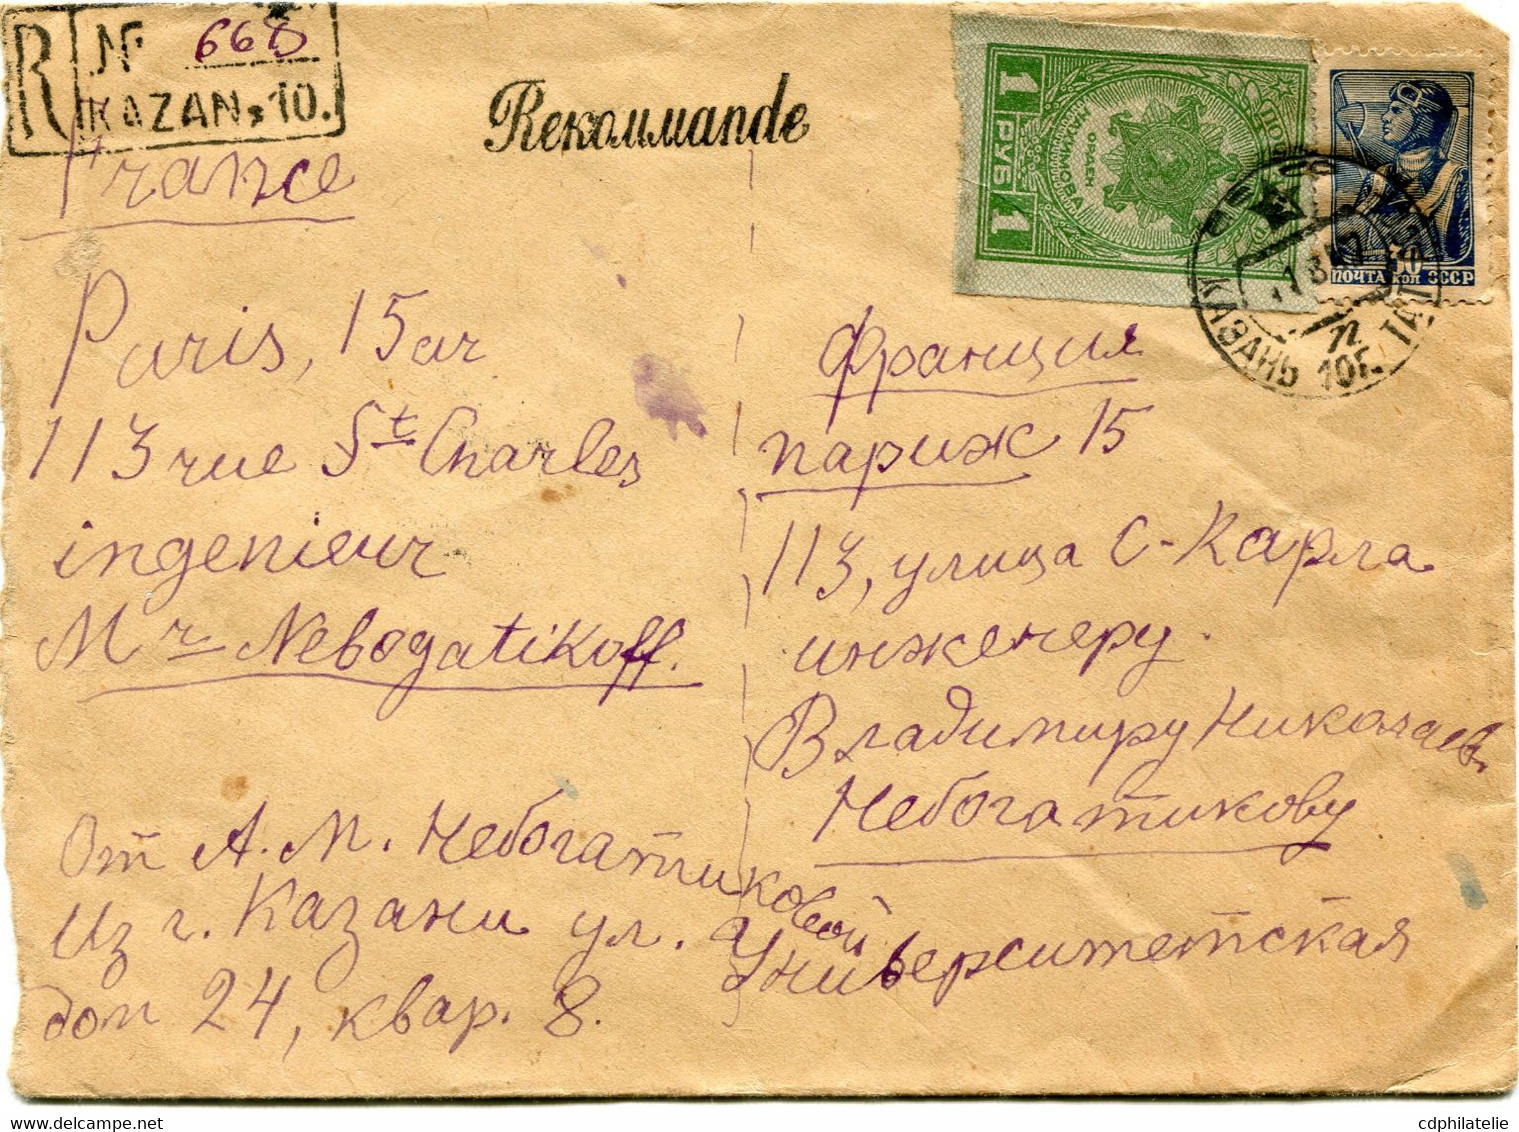 R № 668
KAZAN, 10.
Rекоммаnde
France
Paris, 15 ar
113 rue St Charles
ingenieur
Mr Nebogatikoff.
1 РУБ 1
ОРДЕН
НАХИМОВА
30
ПОЧТА КОП СССР
КАЗАНЬ 10 Г.
Франция
париж 15
113, улица С-Карла
инженеру.
Владимиру Николаев.
Небогатикову
От А. М. Небогатиковой
Из г. Казани ул. Университетская
дом 24, квар. 8.
cdphilatelie